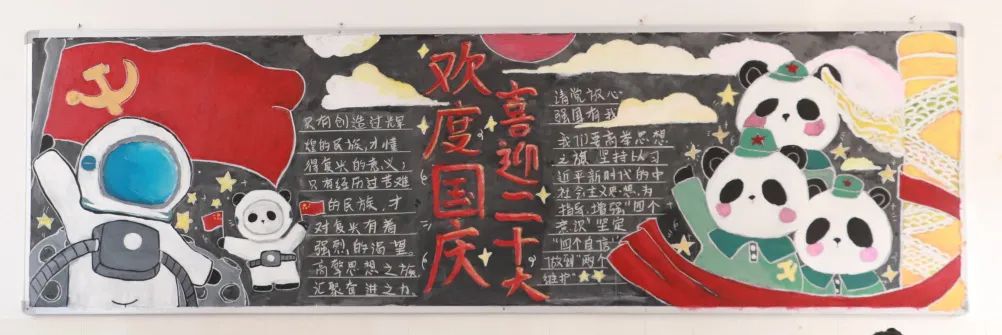 欢度国庆
喜迎二十大
只有创造过辉
煌的民族,才懂
得复兴的意义;
只有经历过苦难
的民族,才
对复兴有着
强烈的渴望。
高擎思想之旗,
汇聚奋进之力。
请党放心
强国有我
我们要高举思想
之旗,坚持以习
近平新时代的中
社会主义思想为
指导,增强"四个
意识"坚定
"四个自信"
做到"两个
维护"